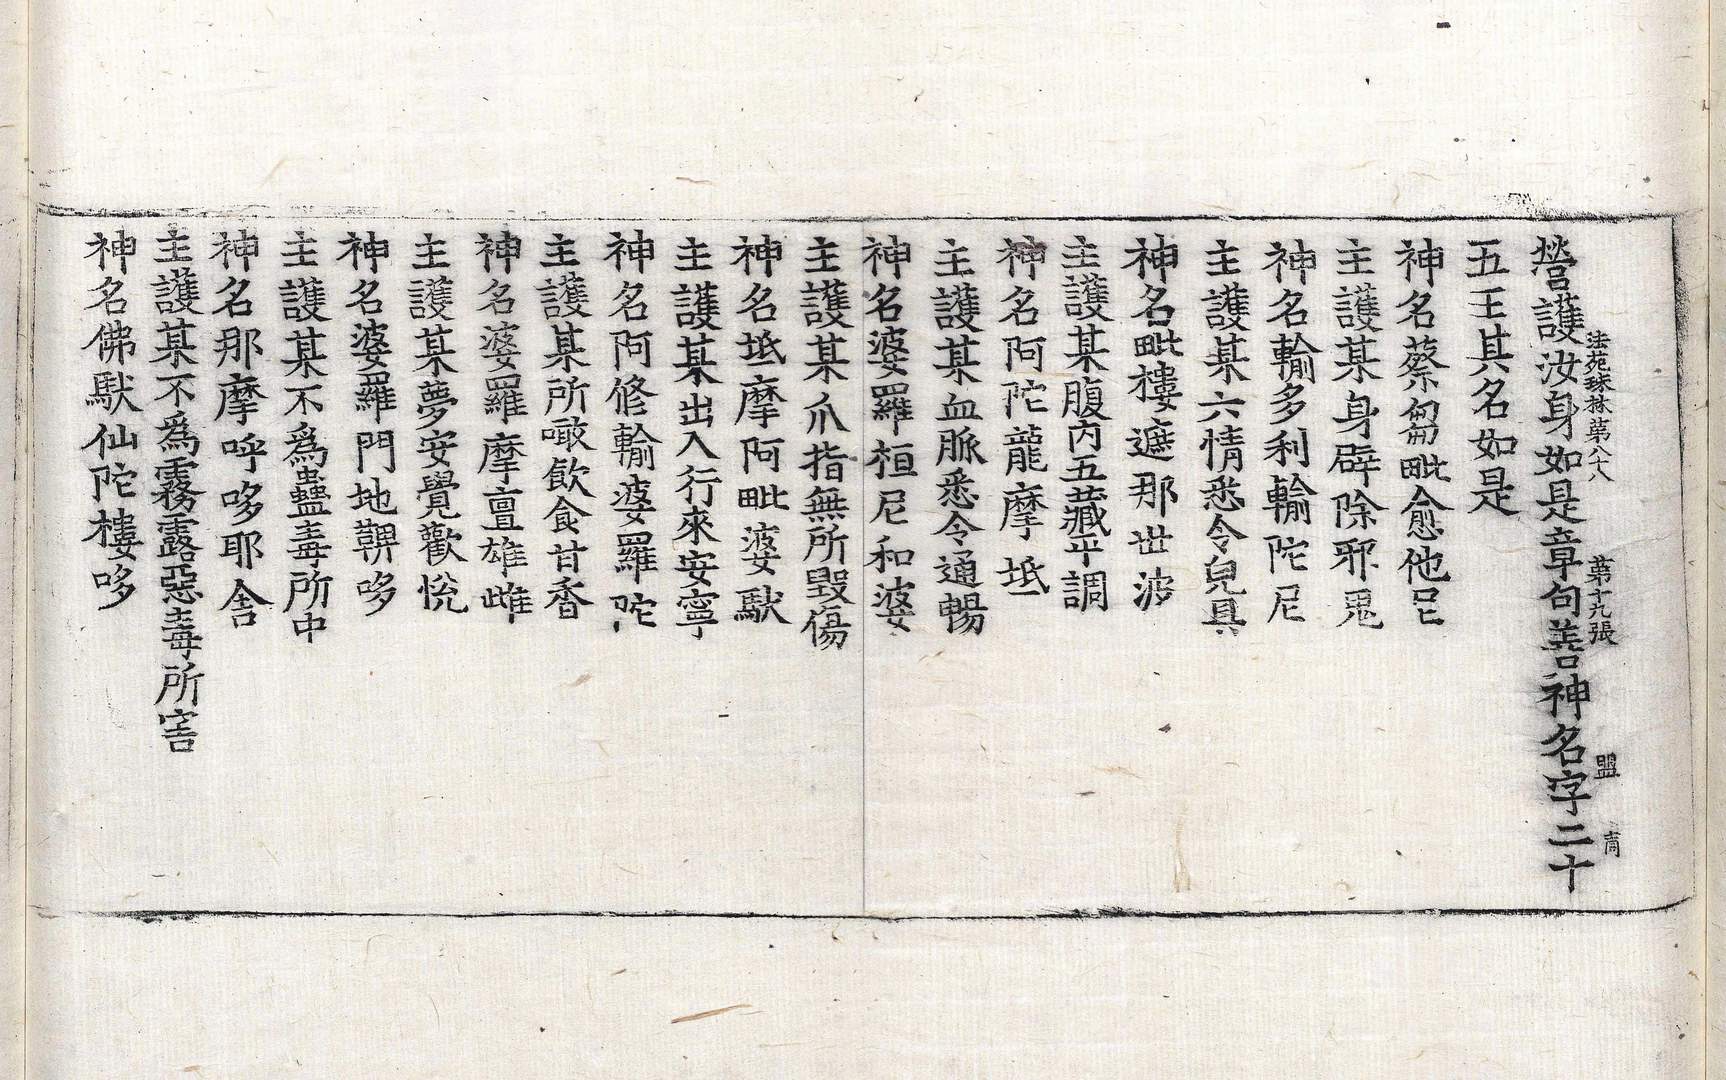 營護汝身如是章句善神名字二十
法苑珠林第八十八 第十九張 盟
五王其名如是
神名蔡芻毗愈他尼
主護某身辟除邪鬼
神名輸多利輸陀尼
主護某六情悉令皃具
神名毗樓遮那世波
主護某腹内五藏平調
神名阿陀龍摩坻
主護某血脈悉令通暢
神名婆羅桓尼和婆
主護某爪指無所毀傷
神名坻摩阿毗婆馱
主護某出入行來安寧
神名阿修輸婆羅陀
主護某所噉飲食甘香
神名婆羅摩亶雄雌
主護某夢安覺歡悅
神名婆羅門地鞞哆
主護某不爲蠱毒所中
神名那摩呼哆耶舍
主護某不爲霧露惡毒所害
神名佛馱仙陀樓哆